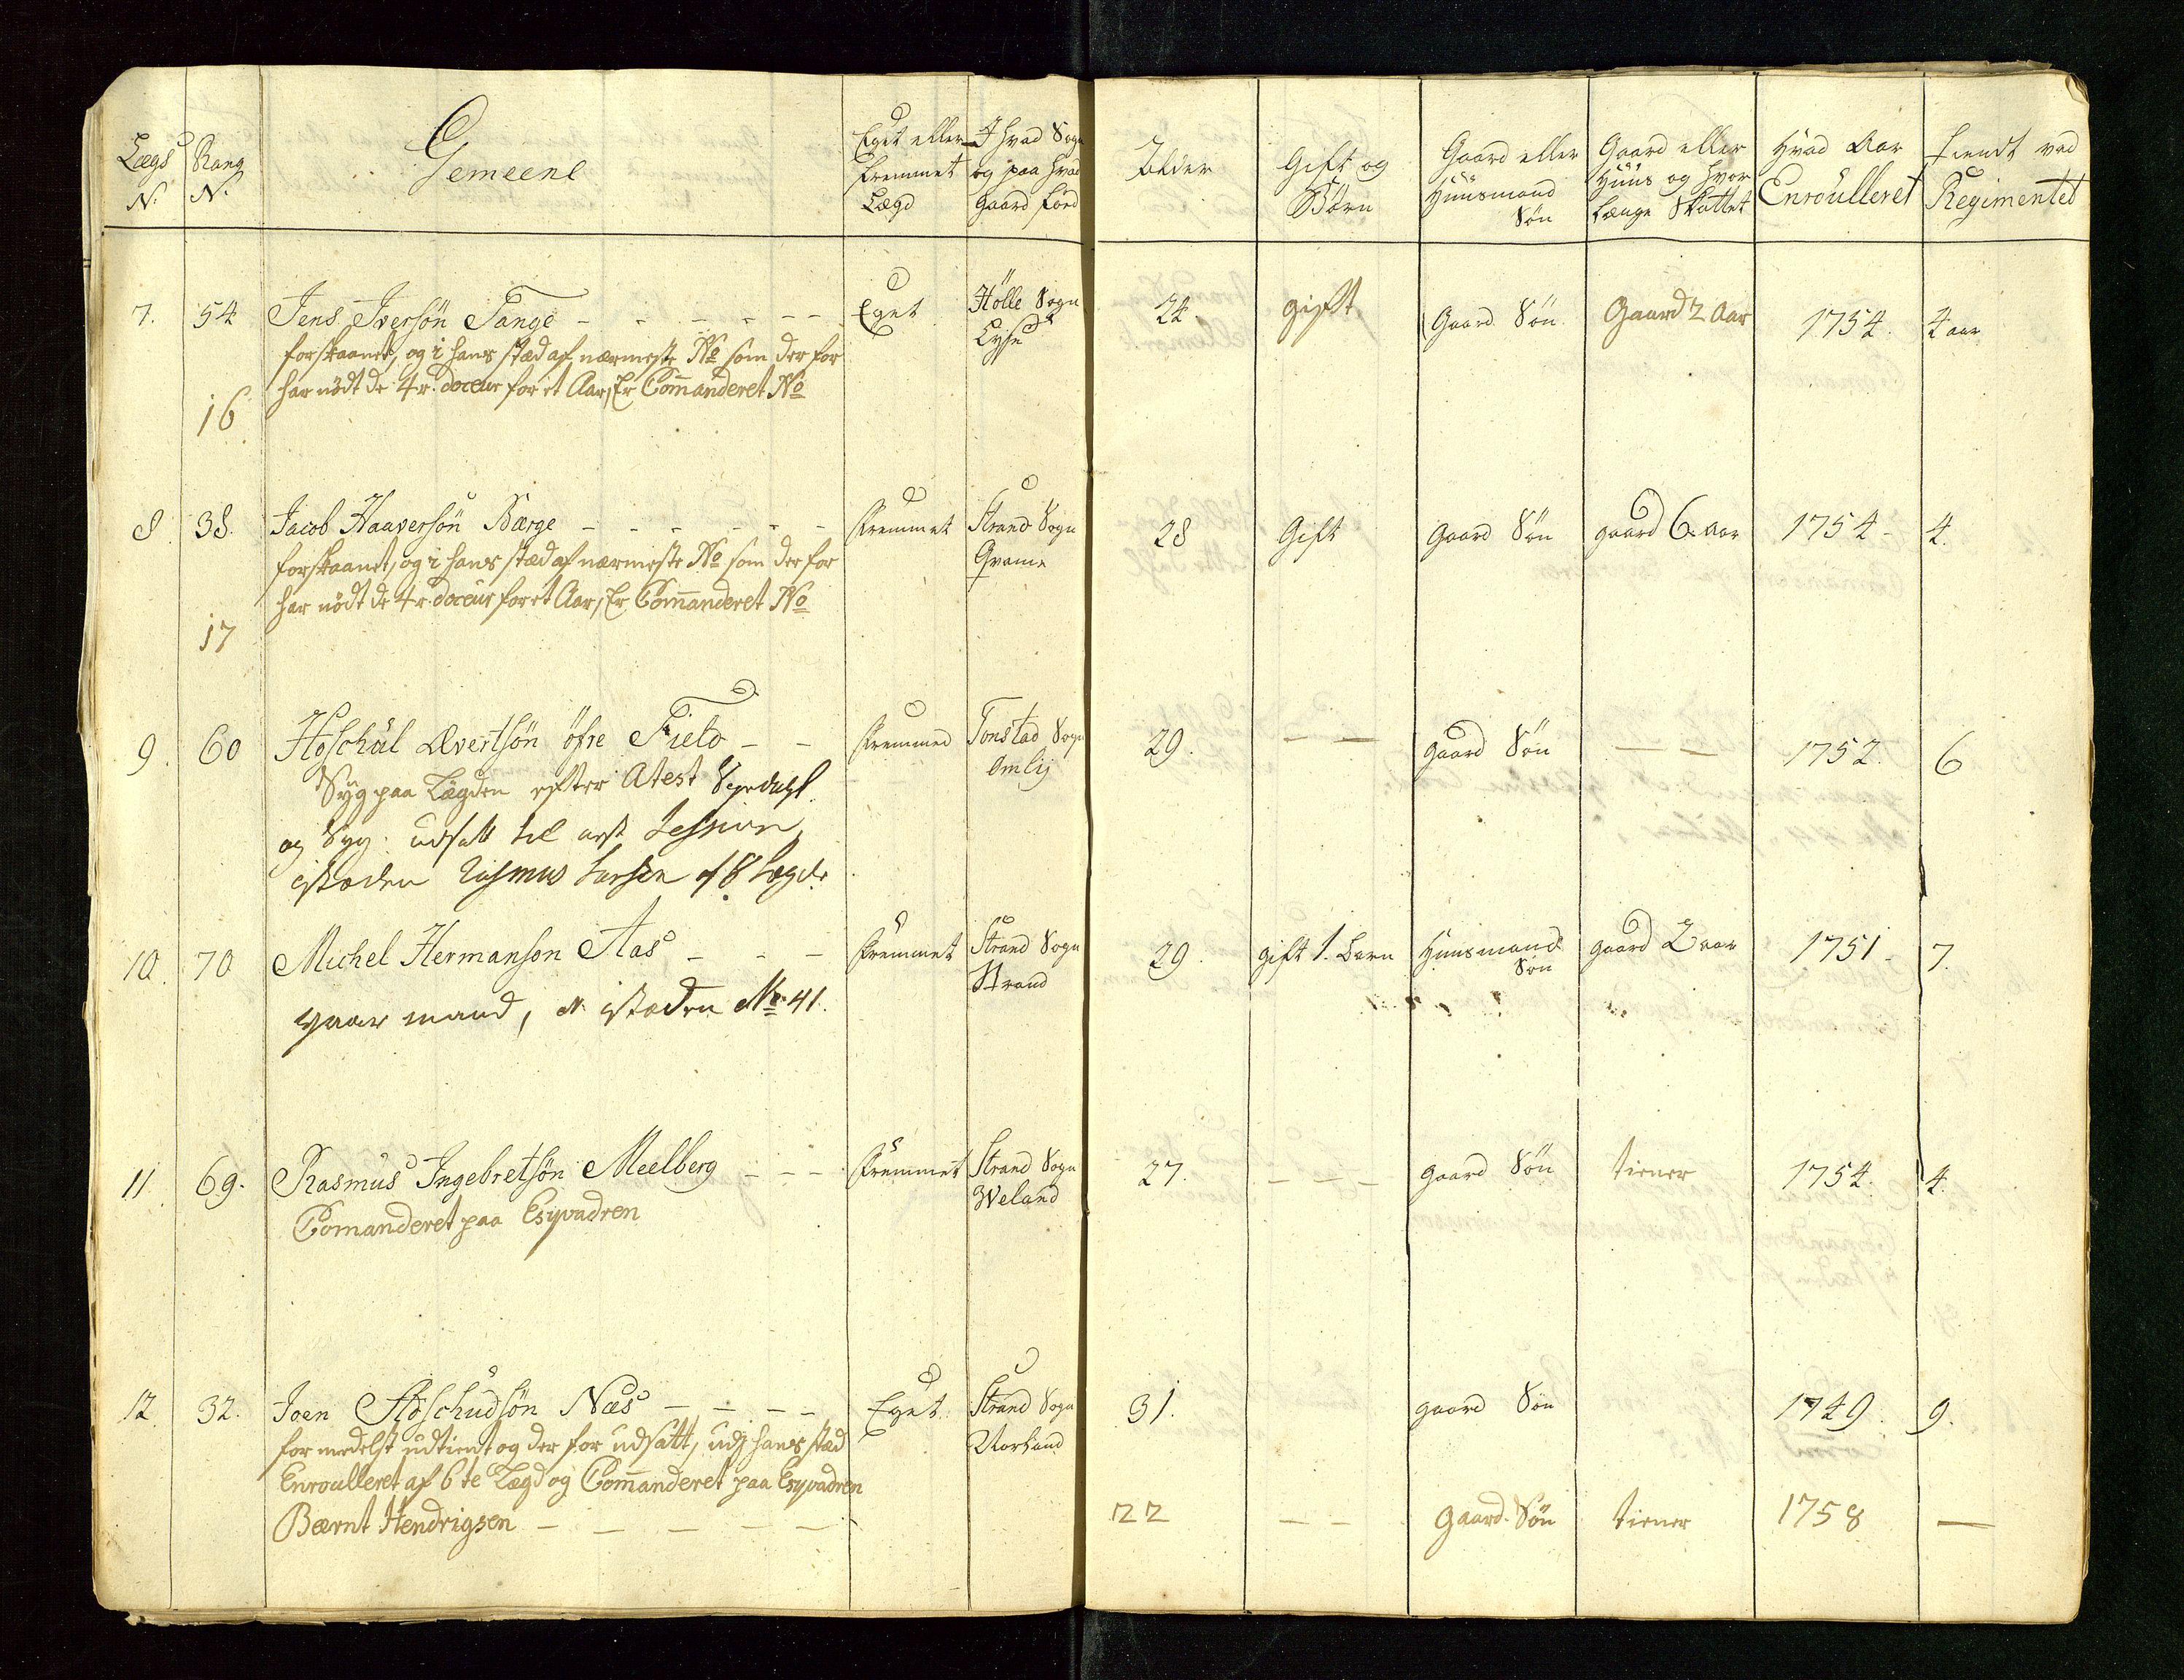 Lægs N. Rang N. Gemeene Eget eller fremmet Lægd I hvad Sogn og paa hvad Gaard født Alder Gift og Børn Gaard eller Huusmand Søn Gaard eller Huus og hvor Længe Skattet Hvad Aar Enroulleret tiendt ved Regimentet
7. 54 Jens Iversön Tange - - - - - - Eget Hölle Sogn Lyse 24. gift Gaard Søn Gaard 2 Aar 1754. 4 aar
forskaanet, og i hans stæd af nærmeste No som der for
har nödt de 4 r. doceur for et Aar, Er Com̄anderet No
16
8. 38. Jacob Haaversön Barge - - - - - - fremmet Strand Sogn Qvame 28 Gift Gaard Søn gaard 6 aar 1754 - 4.
forskaanet, og i hans stæd af nærmeste No som der for
har nödt de 4 r. doceur for et Aar, Er Com̄anderet No
17
9. 60 Hoschül Evertsön öfre Field - - fremmed Tonstad Sogn Omlij 29. - - gaard Søn - - 1752. 6
Syg paa Lægden efter Atest
og Syg. udsatt til nest Session,
istæden Rasmus Larsen af 8 Lægd.
10. 70 Michel Hermanson Aas - - - fremmet Strand Sogn Strand 29. gift 1. Barn Huusmand Søn gaard 2 aar 1751 - 7.
gaar mand, istæden No 41.
11 69. Rasmus Ingebretsön Meelberg - - - fremmet Strand Sogn Weland 27. - - - gaard Søn tiener 1754. 4.
Comanderet paa Esqvadren
12 32. Joen Hoschudsön Næs - - - - Eget Strand Sogn Norland 31. gaard Søn 1749. 9.
formedelst udtient og der for udsatt, udj hans stæd
Enroulleret af 6te Lægd og Com̄anderet paa Esqvadren
Bærnt Hendrigsen - - - - - 22 - - Gaard. Søn tiener 1758 -